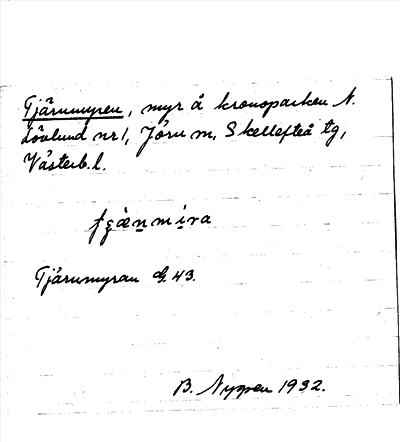 Tjärnmyren, myr å kronoparken N.
Lövlund nr 1, Jörn sn, Skellefteå tg,
Västerb. l.
Tjärnmyran G. 43.
B. Nygren 1932.